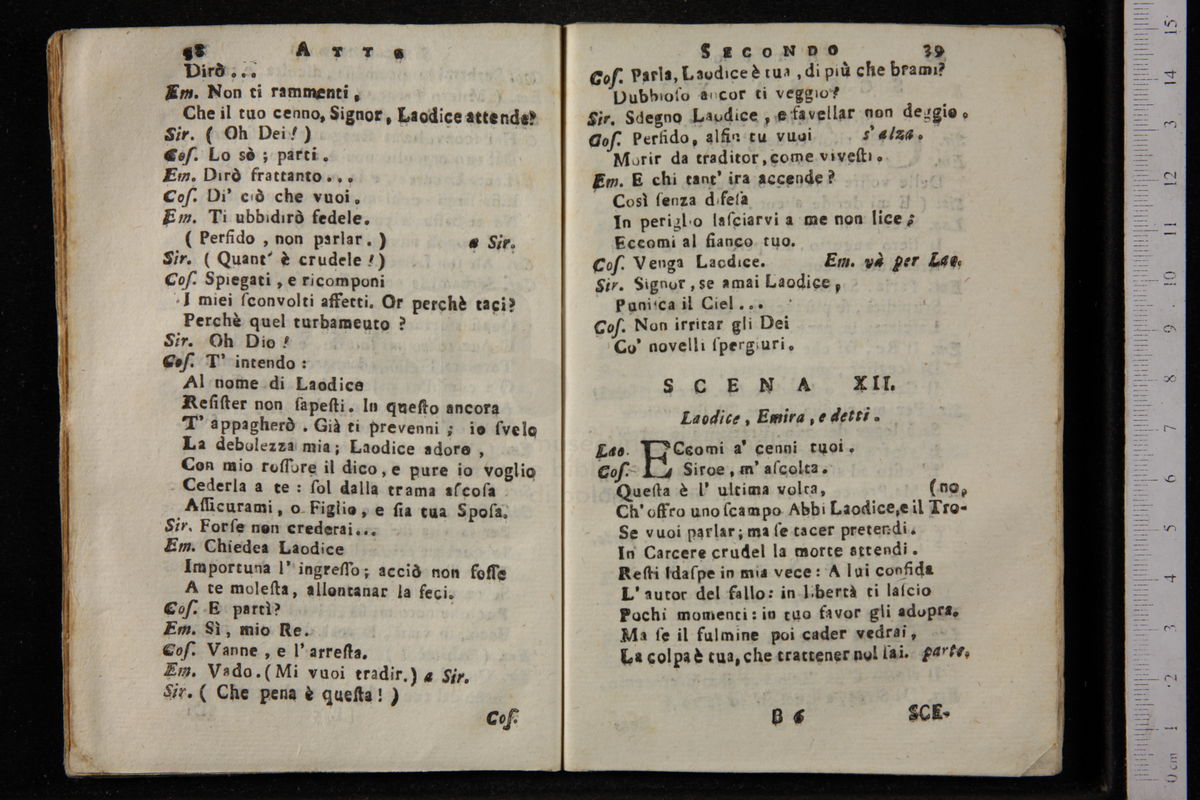 38 Atto
Dirò...
Em. Non ti rammenti,
Che il tuo cenno, Signor, Laodice attende?
Sir. ( Oh Dei! )
Coſ. Lo sò ; parti.
Em. Dirò frattanto...
Coſ. Di' ciò che vuoi.
Em. Ti ubbidirò fedele.
( Perfido , non parlar. ) a Sir.
Sir. ( Quant' è crudele !)
Coſ. Spiegati , e ricomponi
I miei ſconvolti affetti. Or perchè taci?
Perchè quel turbameuto ?
Sir. Oh Dio !
Coſ. T' intendo :
Al nome di Laodice
Reſiſter non ſapeſti. In queſto ancora
T' appagherò . Già ti prevenni ; io ſvelo
La debolezza mia; Laodice adoro ,
Con mio roſſore il dico, e pure io voglio
Cederla a te : ſol dalla trama aſcoſa
Aſſicurami, o Figlio, e ſia tua Spoſa.
Sir. Forſe non crederai...
Em. Chiedea Laodice
Importuna l' ingreſſo; acciò non foſſe
A te moleſta, allontanar la feci.
Coſ. E partì?
Em. Sì, mio Re.
Coſ. Vanne , e l' arreſta.
Em. Vado. (Mi vuoi tradir.) a Sir.
Sir. ( Che pena è queſta ! )
Coſ.
Secondo 39
Coſ. Parla, Laodice è tua , di più che brami?
Dubbioſo ancor ti veggio?
Sir. Sdegno Laodice , e favellar non deggio.
Coſ. Perfido, alfin tu vuoi s' alza.
Morir da traditor, come viveſti.
Em. E chi tant' ira accende?
Così ſenza difeſa
In periglio laſciarvi a me non lice;
Eccomi al fianco tuo.
Coſ. Venga Laodice. Em. và per Lao.
Sir. Signor, se amai Laodice,
Puniſca il Ciel...
Coſ. Non irritar gli Dei
Co' novelli ſpergiuri.
SCENA XII.
Laodice, Emira, e detti.
Lao. ECcomi a' cenni tuoi.
Coſ. Siroe, m' aſcolta.
Queſta è l' ultima volta, (no,
Ch' offro uno ſcampo Abbi Laodice, e il Tro-
Se vuoi parlar; ma ſe tacer pretendi.
In Carcere crudel la morte attendi.
Reſti Idaſpe in mia vece: A lui confida
L' autor del fallo: in libertà ti laſcio
Pochi momenti: in tuo favor gli adopra.
Ma ſe il fulmine poi cader vedrai,
La colpa è tua, che trattener nol ſai. parte.
B 6 SCE-